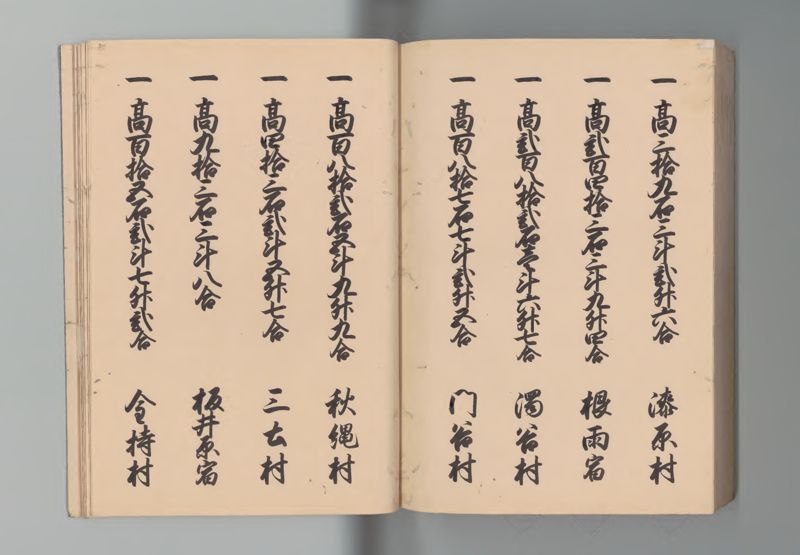 一 高三拾九石三斗弐升六合 漆原村
一 高弐百四拾三石三斗九升四合 根雨宿
一 高弐百八拾弐石壱斗六升七合 濁谷村
一 高百八拾七石七斗弐升五合 門谷村
一 高百八拾弐石五斗九升九合 秋縄村
一 高四拾三石弐斗五升七合 三土村
一 高九拾三石三斗八合 板井原宿
一 高百拾五石弐斗七升弐合 金持村